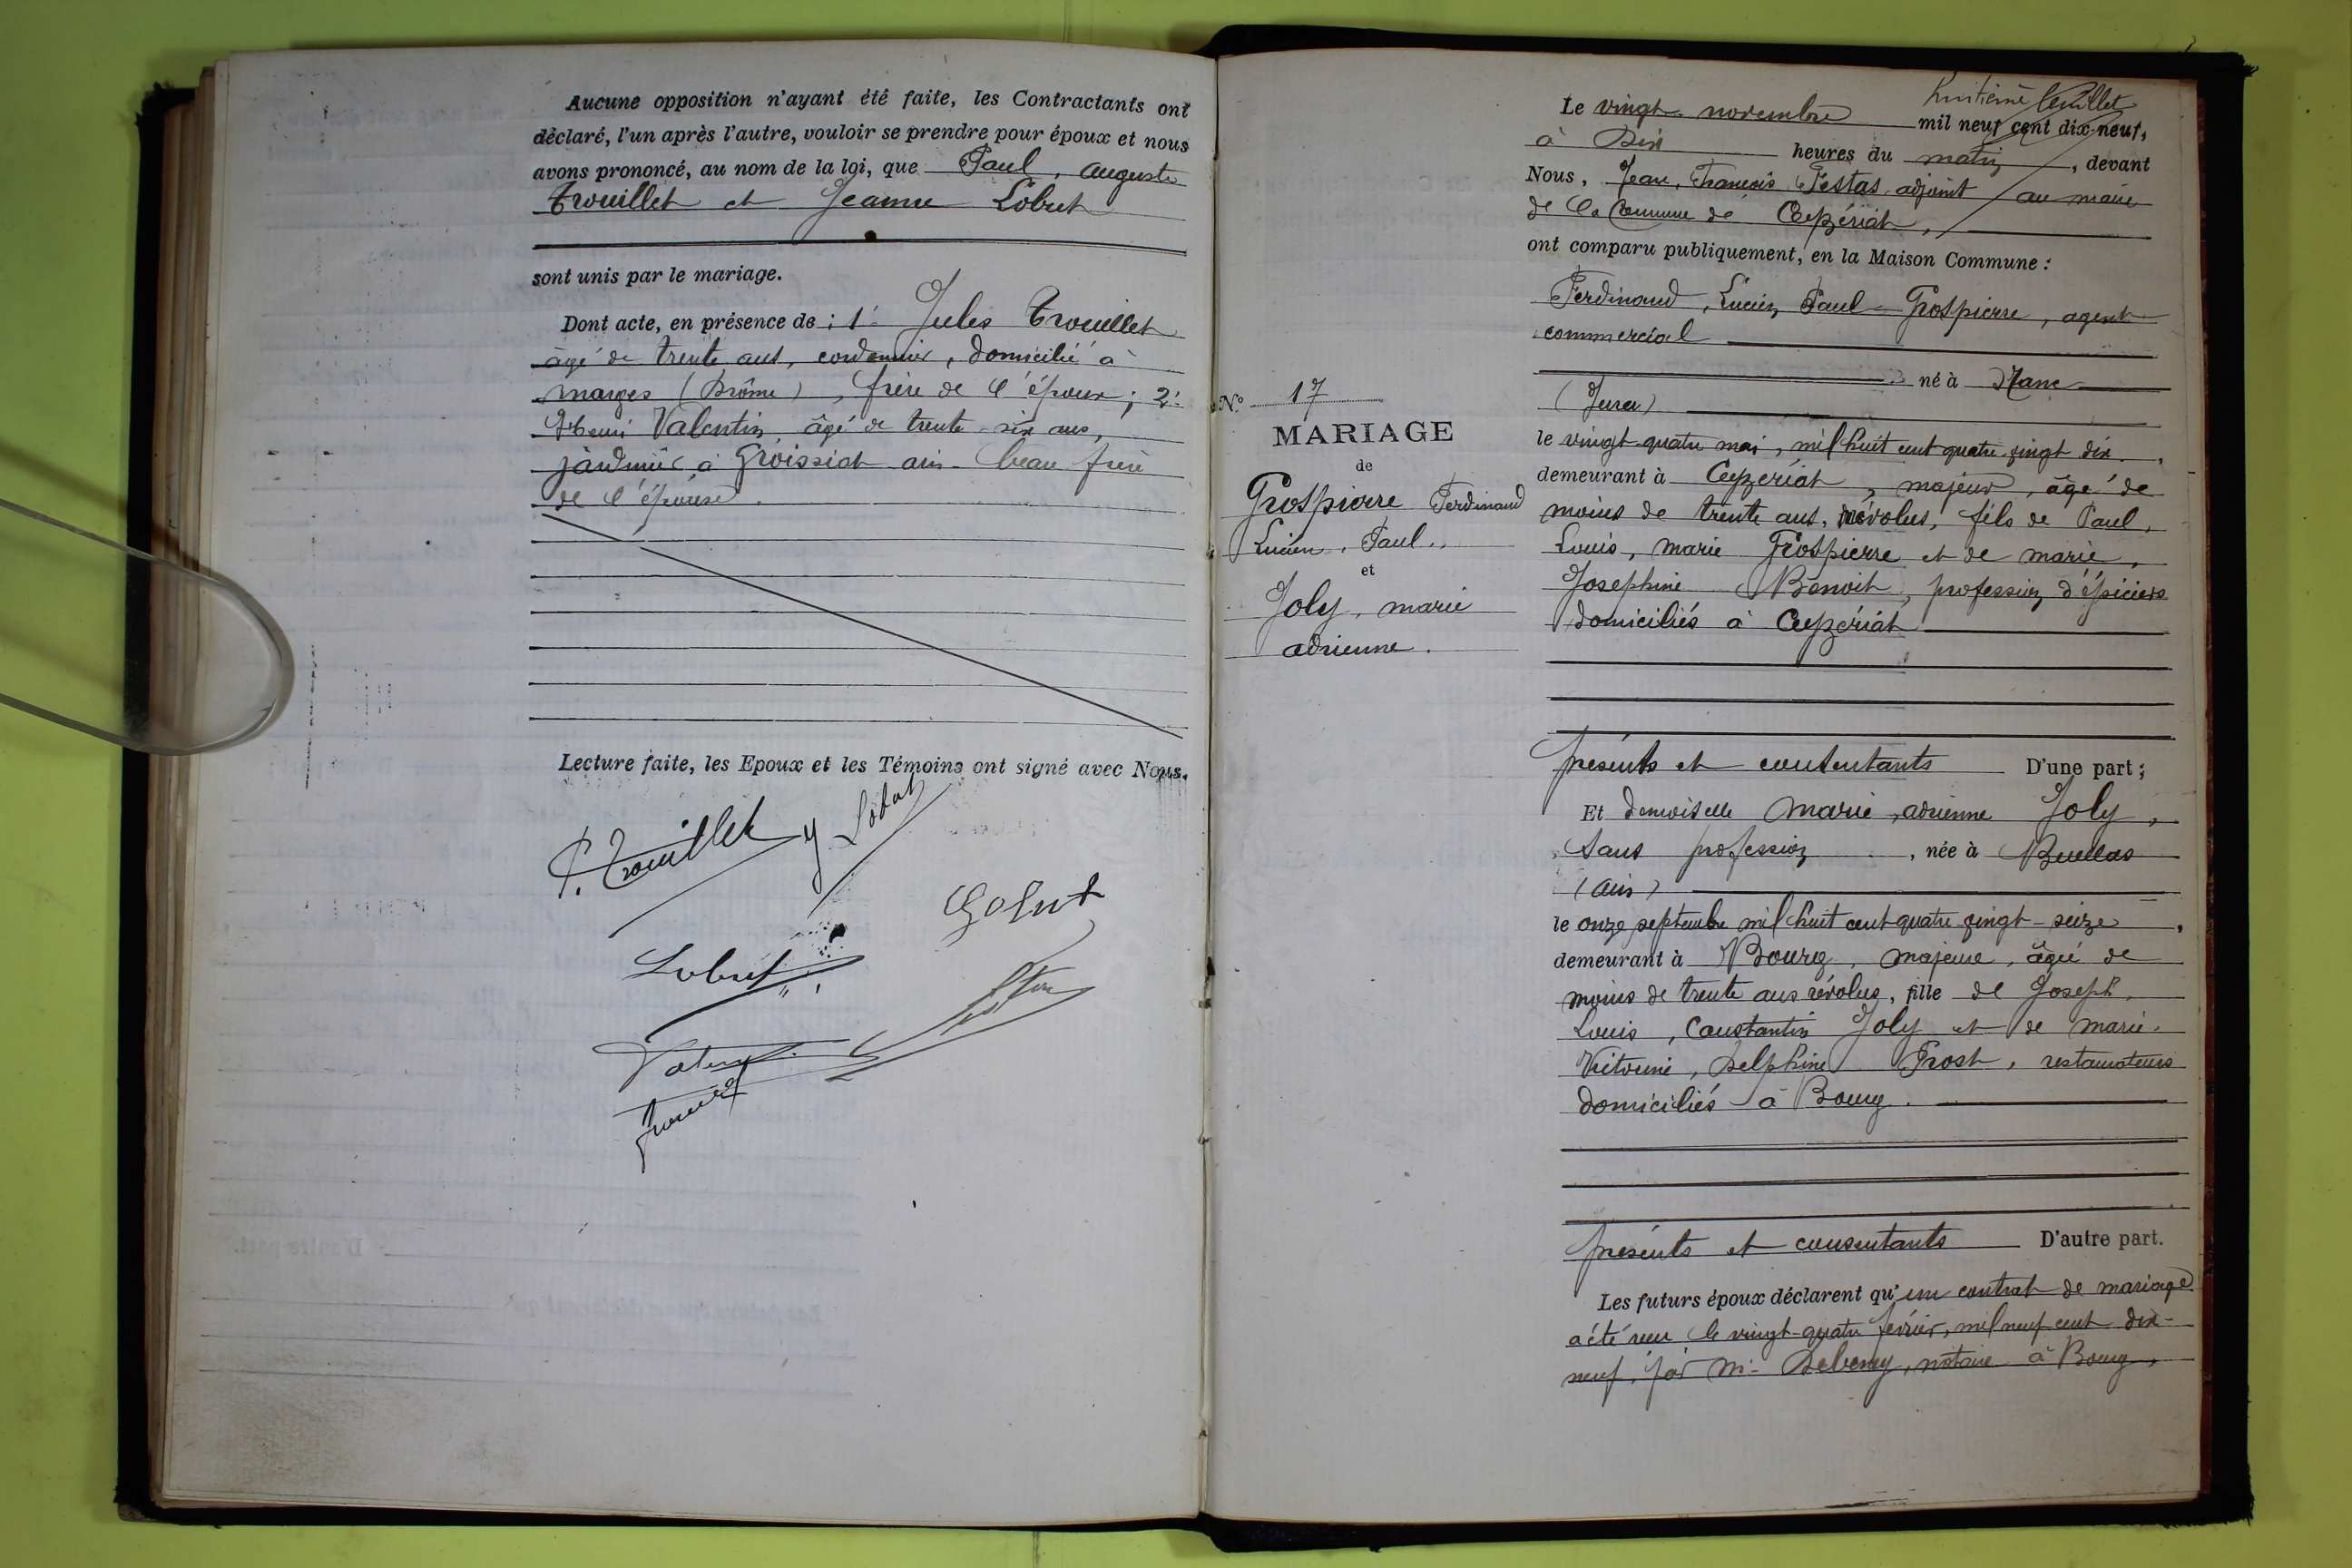 Aucune opposition n'ayant été faite, les Contractants ont
déclaré, l'un après l'autre, vouloir se prendre pour époux et nous
avons prononcé, au nom de la loi, que Paul, auguste
Trouillet et Jeanne Lobut
sont unis par le mariage.
Dont acte, en présence de : 1° Jules Trouillet
âgé de trente ans, cordonnier, domicilié à
marges (Drôme), frère de l'époux ; 2°
Henri Valentin âgé de trente-six ans,
jardinier à Groissiat ain - beau frère
de l'épouse.
Lecture faite, les Epoux et les Témoins ont signé avec Nous.
P. Trouillet J Lobut
Golut
Lobut
huitième feuillet
Le vingt novembre mil neuf cent dix-neuf,
à Dix heures du matin, devant
Nous, Jean, François Pestas adjoint au maire
de la Commune de Ceyzériat,
ont comparu publiquement, en la Maison Commune :
Ferdinand, Lucien, Paul Grospierre, agent
commercial
né à Nanc
(Jura)
N° 17
MARIAGE
de
Grospierre Ferdinand
Lucien, Paul.
et
Joly, marie
adrienne.
le vingt-quatre mai, mil huit cent quatre vingt dix,
demeurant à Ceyzériat, majeur, âgé de
moins de trente ans, révolus, fils de Paul,
Louis, marie Grospierre et de marie,
Josephine Benoit, profession d'épiciers
domiciliés à Ceyzériat
présents et consentants D'une part ;
Et demoiselle Marie, adrienne Joly,
Sans profession, née à Buellas
(ain)
le onze septembre mil huit cent quatre vingt-seize,
demeurant à Bourg, majeure, âgée de
moins de trente ans révolus, fille de Joseph,
Louis, Constantin Joly et de marie.
Victorine, Delphine Prost, restaurateurs
domiciliés à Bourg.
présents et consentants D'autre part.
Les futurs époux déclarent qu'un contrat de mariage
a été reçu le vingt-quatre février, mil neuf cent dix-
neuf, par M° notaire à Bourg,